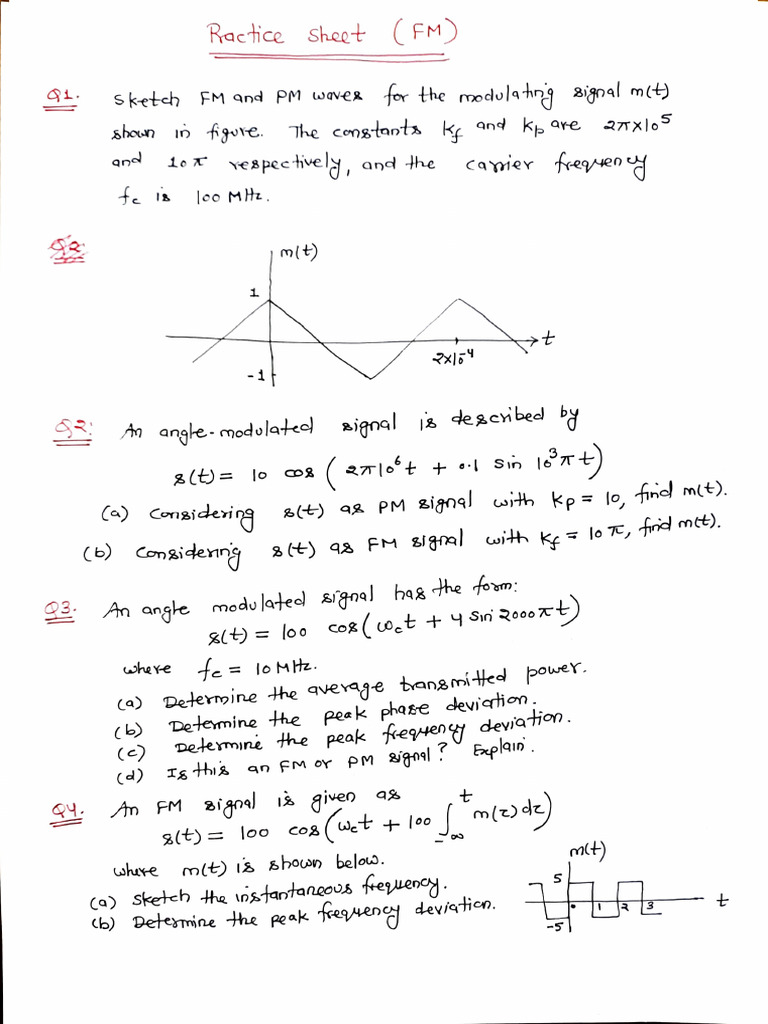 Practice Sheet (FM)
Q1. Sketch FM and PM waves for the modulating signal m(t)
shown in figure. The constants kf and kp are 2π×10⁵
and 10π respectively, and the carrier frequency
fc is 100 MHz.
Q2:
m(t)
1
-1
2×10⁻⁴
t
Q2: An angle-modulated signal is described by
s(t) = 10 cos (2π10⁶t + 0.1 sin 10³πt)
(a) Considering s(t) as PM signal with kp = 10, find m(t).
(b) Considering s(t) as FM signal with kf = 10π, find m(t).
Q3. An angle modulated signal has the form:
s(t) = 100 cos(ωct + 4 sin 2000πt)
where fc = 10 MHz.
(a) Determine the average transmitted power.
(b) Determine the peak phase deviation.
(c) Determine the peak frequency deviation.
(d) Is this an FM or PM signal? Explain.
Q4. An FM signal is given as
s(t) = 100 cos(ωct + 100 ∫_{-∞}^{t} m(τ)dτ)
where m(t) is shown below.
(a) Sketch the instantaneous frequency.
(b) Determine the peak frequency deviation.
m(t)
5
1 2 3
t
-5